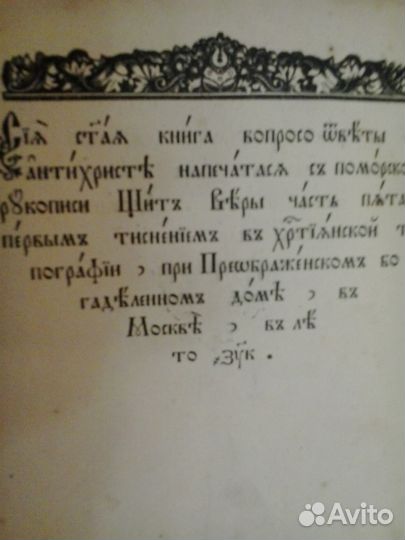 Сїѧ̀ ст҃аѧ кни́га вопросо ѿвѣ́ты
антїхристѣ напеча́тасѧ съ помо́рско
рꙋкописи Щитъ Вѣ́ры ча́сть пѧ́та
пе́рвымъ тисне́нїемъ въ хр҇тїѧ́нской т
погра́фїи , при Преѡбраже́нскомъ бо
гадѣ́ленномъ до́мѣ , въ
Москвѣ̀ , въ лѣ́
то ҂ЗУК .
Avito